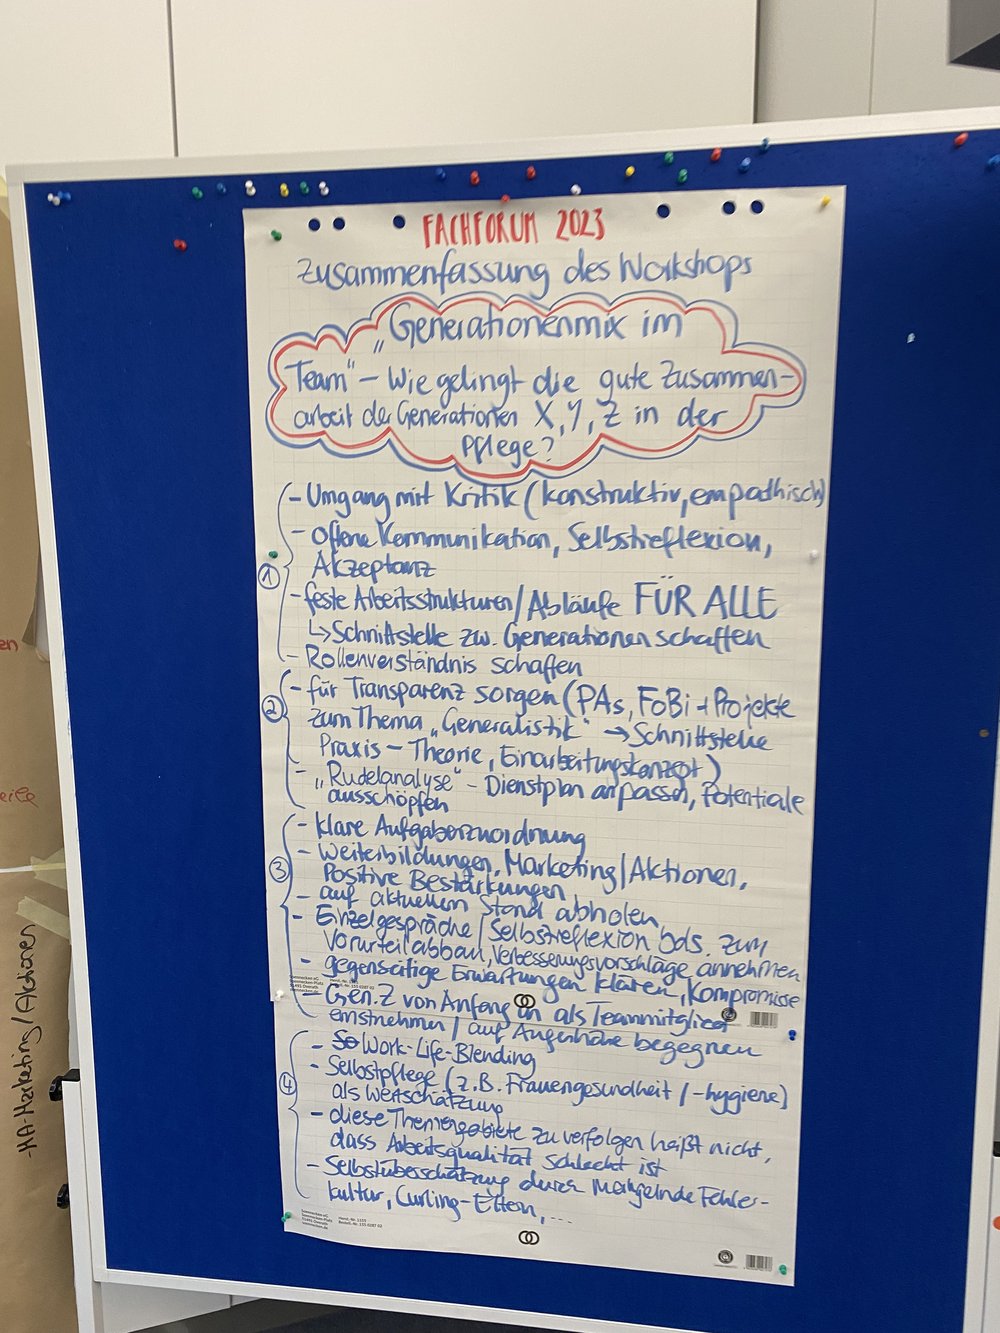 FACHFORUM 2023
Zusammenfassung des Workshops
„Generationenmix im
Team“ – Wie gelingt die gute Zusammen-
arbeit der Generationen X, Y, Z in der
Pflege?
①
- Umgang mit Kritik (konstruktiv, empathisch)
- offene Kommunikation, Selbstreflexion,
Akzeptanz
- feste Arbeitsstrukturen/Abläufe FÜR ALLE
↳ Schnittstelle zw. Generationen schaffen
- Rollenverständnis schaffen
②
- für Transparenz sorgen (PAs, FoBi + Projekte
zum Thema „Generalistik“ → Schnittstelle
Praxis – Theorie, Einarbeitungskonzept)
- „Rudelanalyse“ - Dienstplan anpassen, Potentiale
ausschöpfen
③
- klare Aufgabenzuordnung
- Weiterbildungen, Marketing/Aktionen,
Positive Bestärkungen
- auf aktuellem Stand abholen
- Einzelgespräche / Selbstreflexion bds. zum
Vorurteil abbau, Verbesserungsvorschläge annehmen
- gegenseitige Erwartungen klären, Kompromisse
- Gen. Z von Anfang an als Teammitglied
einstnehmen / auf Augenhöhe begegnen
④
- Work-Life-Blending
- Selbstpflege (z.B. Frauengesundheit / -hygiene)
als Wertschätzung
- diese Themengebiete zu verfolgen heißt nicht,
dass Arbeitsqualität schlecht ist
- Selbstüberschätzung durch mangelnde Fehler-
kultur, Curling-Eltern, ...
-HA-Marketing/Aktionen